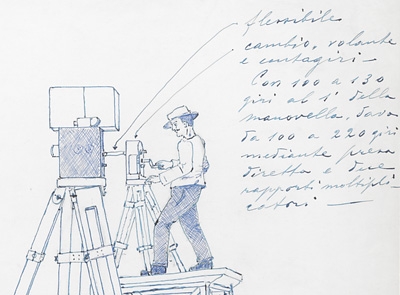 flessibile
cambio, volante
e contagiri -
Con 100 a 130
giri al 1' della
manovella, dava
da 100 a 220 giri
mediante presa
diretta e due
rapporti moltipli-
catori -